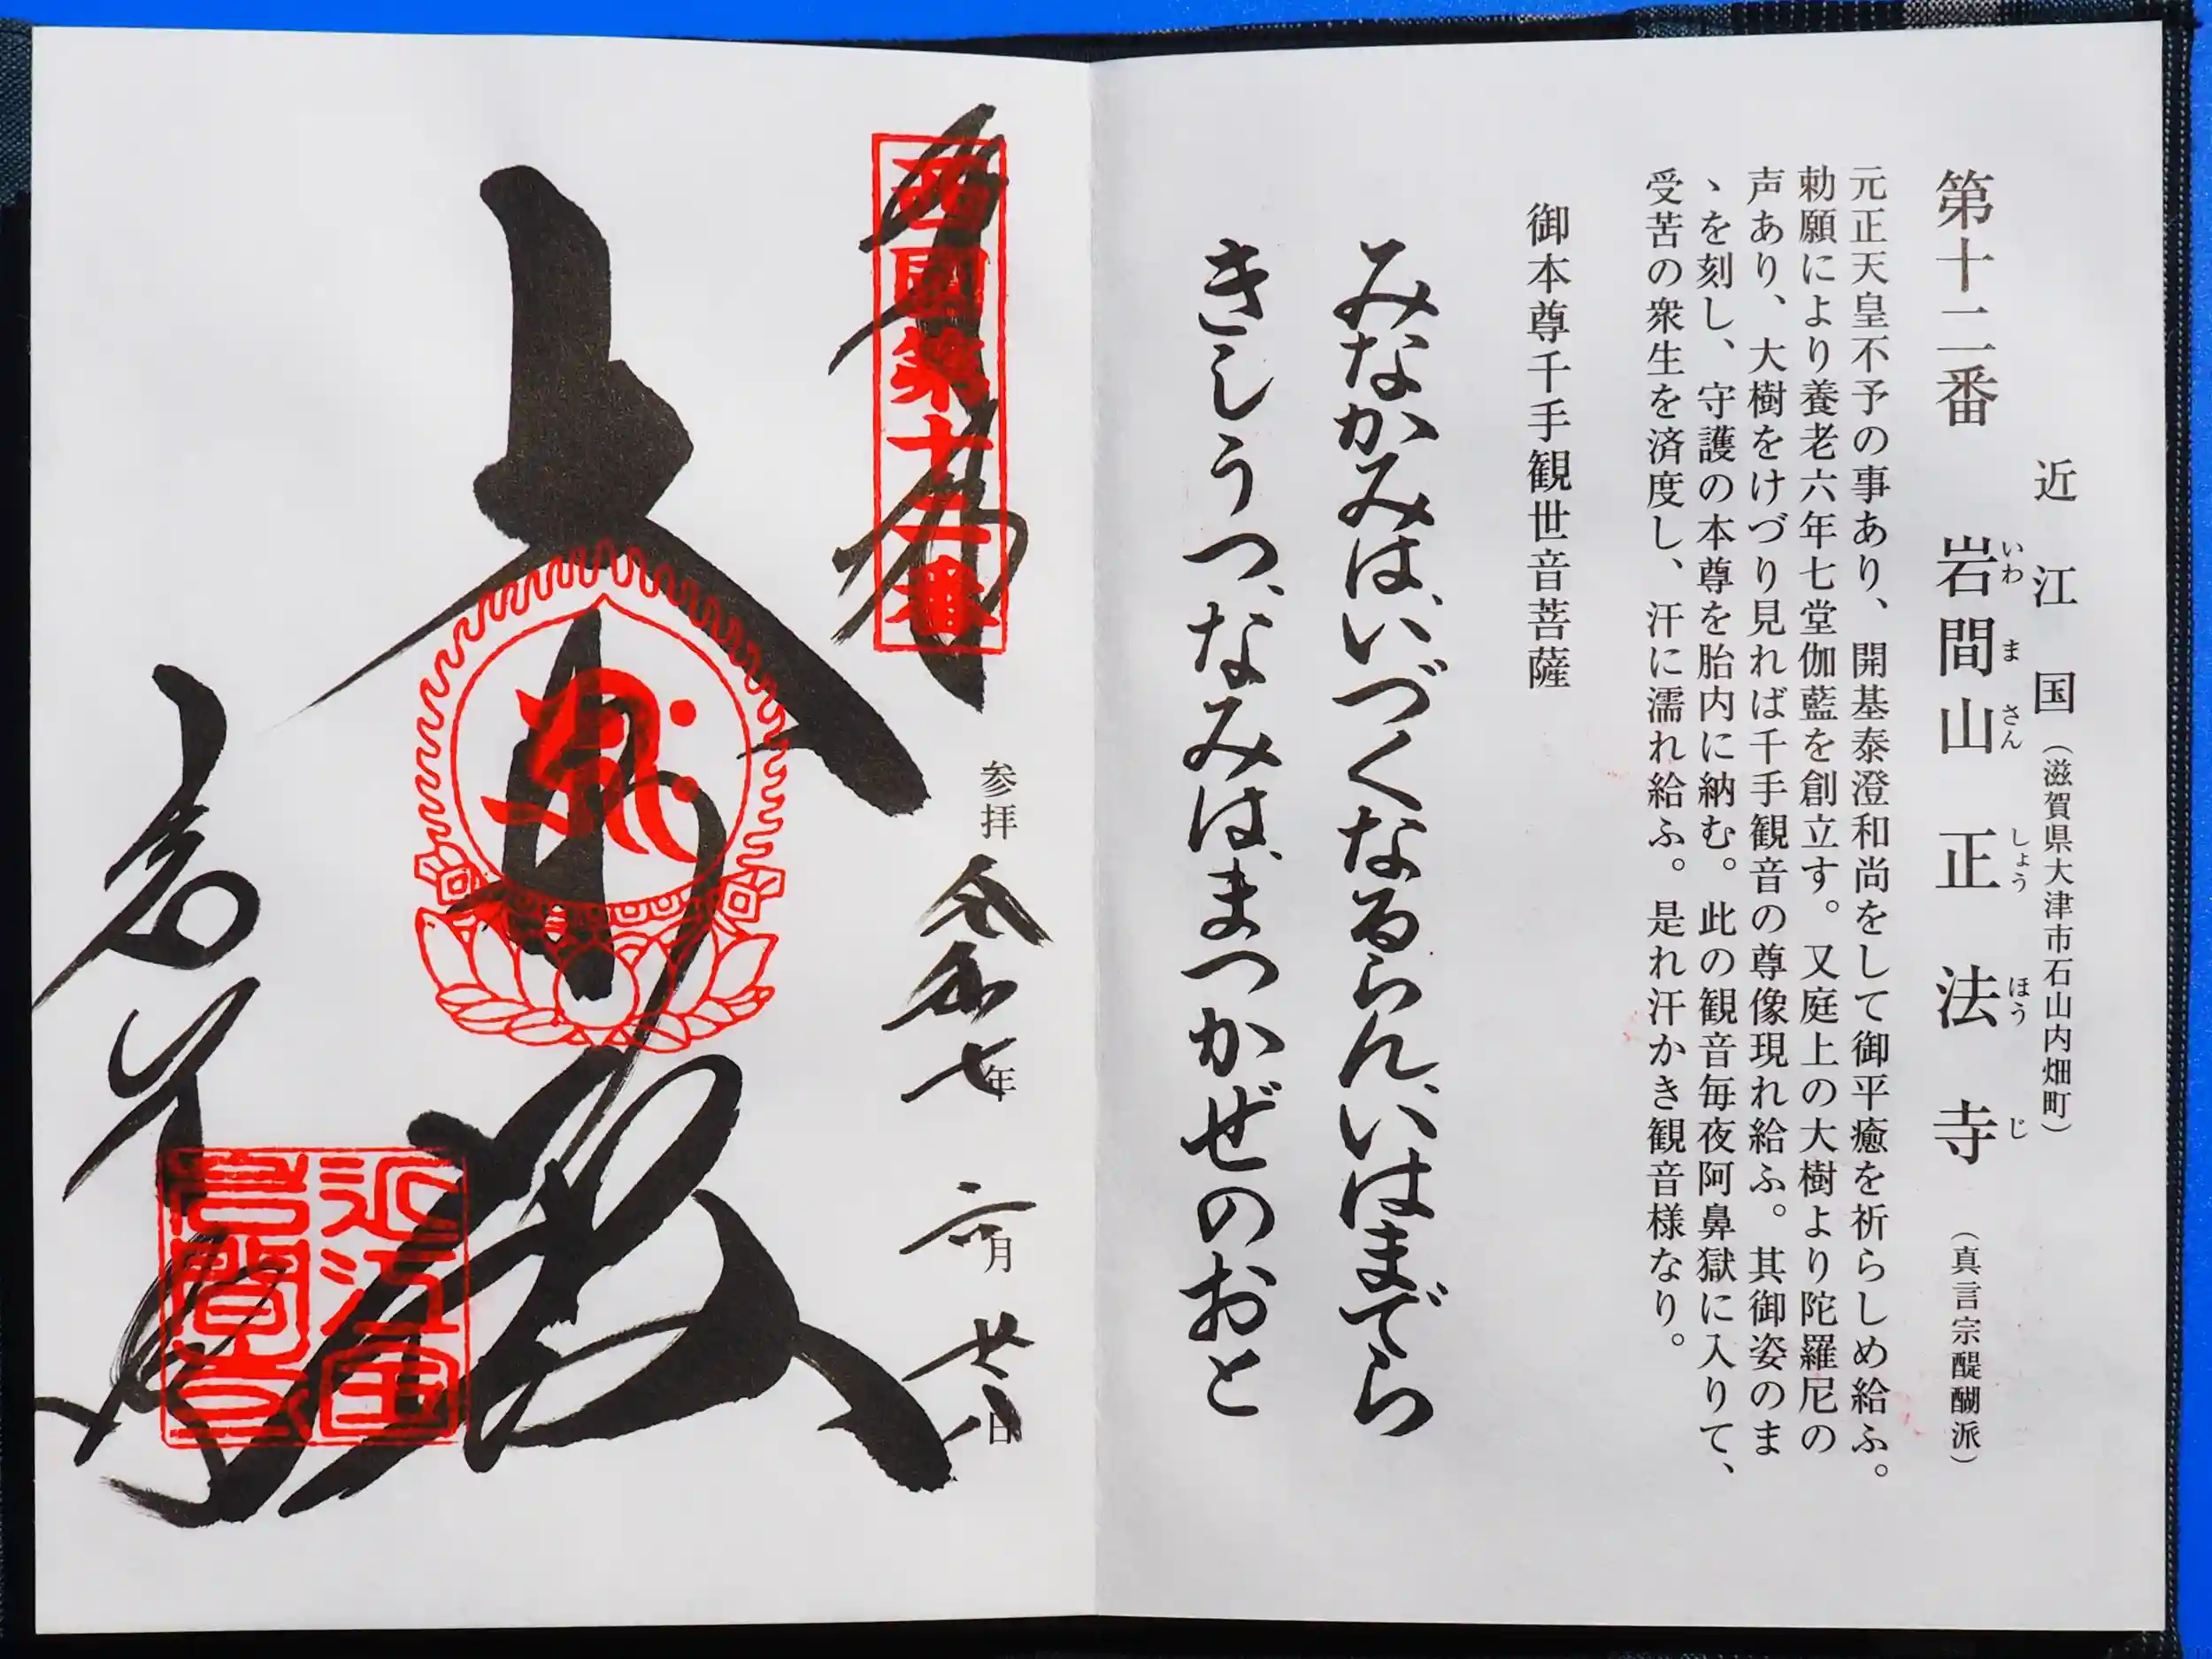 近江国（滋賀県大津市石山内畑町）
第十二番 岩間山 正法寺（真言宗醍醐派）
いわ ま さん しょう ほう じ
元正天皇不予の事あり、開基泰澄和尚をして御平癒を祈らしめ給ふ。
勅願により養老六年七堂伽藍を創立す。又庭上の大樹より陀羅尼の
声あり、大樹をけづり見れば千手観音の尊像現れ給ふ。其御姿のま
ヽを刻し、守護の本尊を胎内に納む。此の観音毎夜阿鼻獄に入りて、
受苦の衆生を済度し、汗に濡れ給ふ。是れ汗かき観音様なり。
御本尊千手観世音菩薩
みなかみは、いづくなるらん、いはまでら
きしうつ、なみは、まつかぜのおと
奉拝
西國第十二番
参拝 令和七年 二月 廿八日
大悲殿
岩间寺
近江国
岩間寺